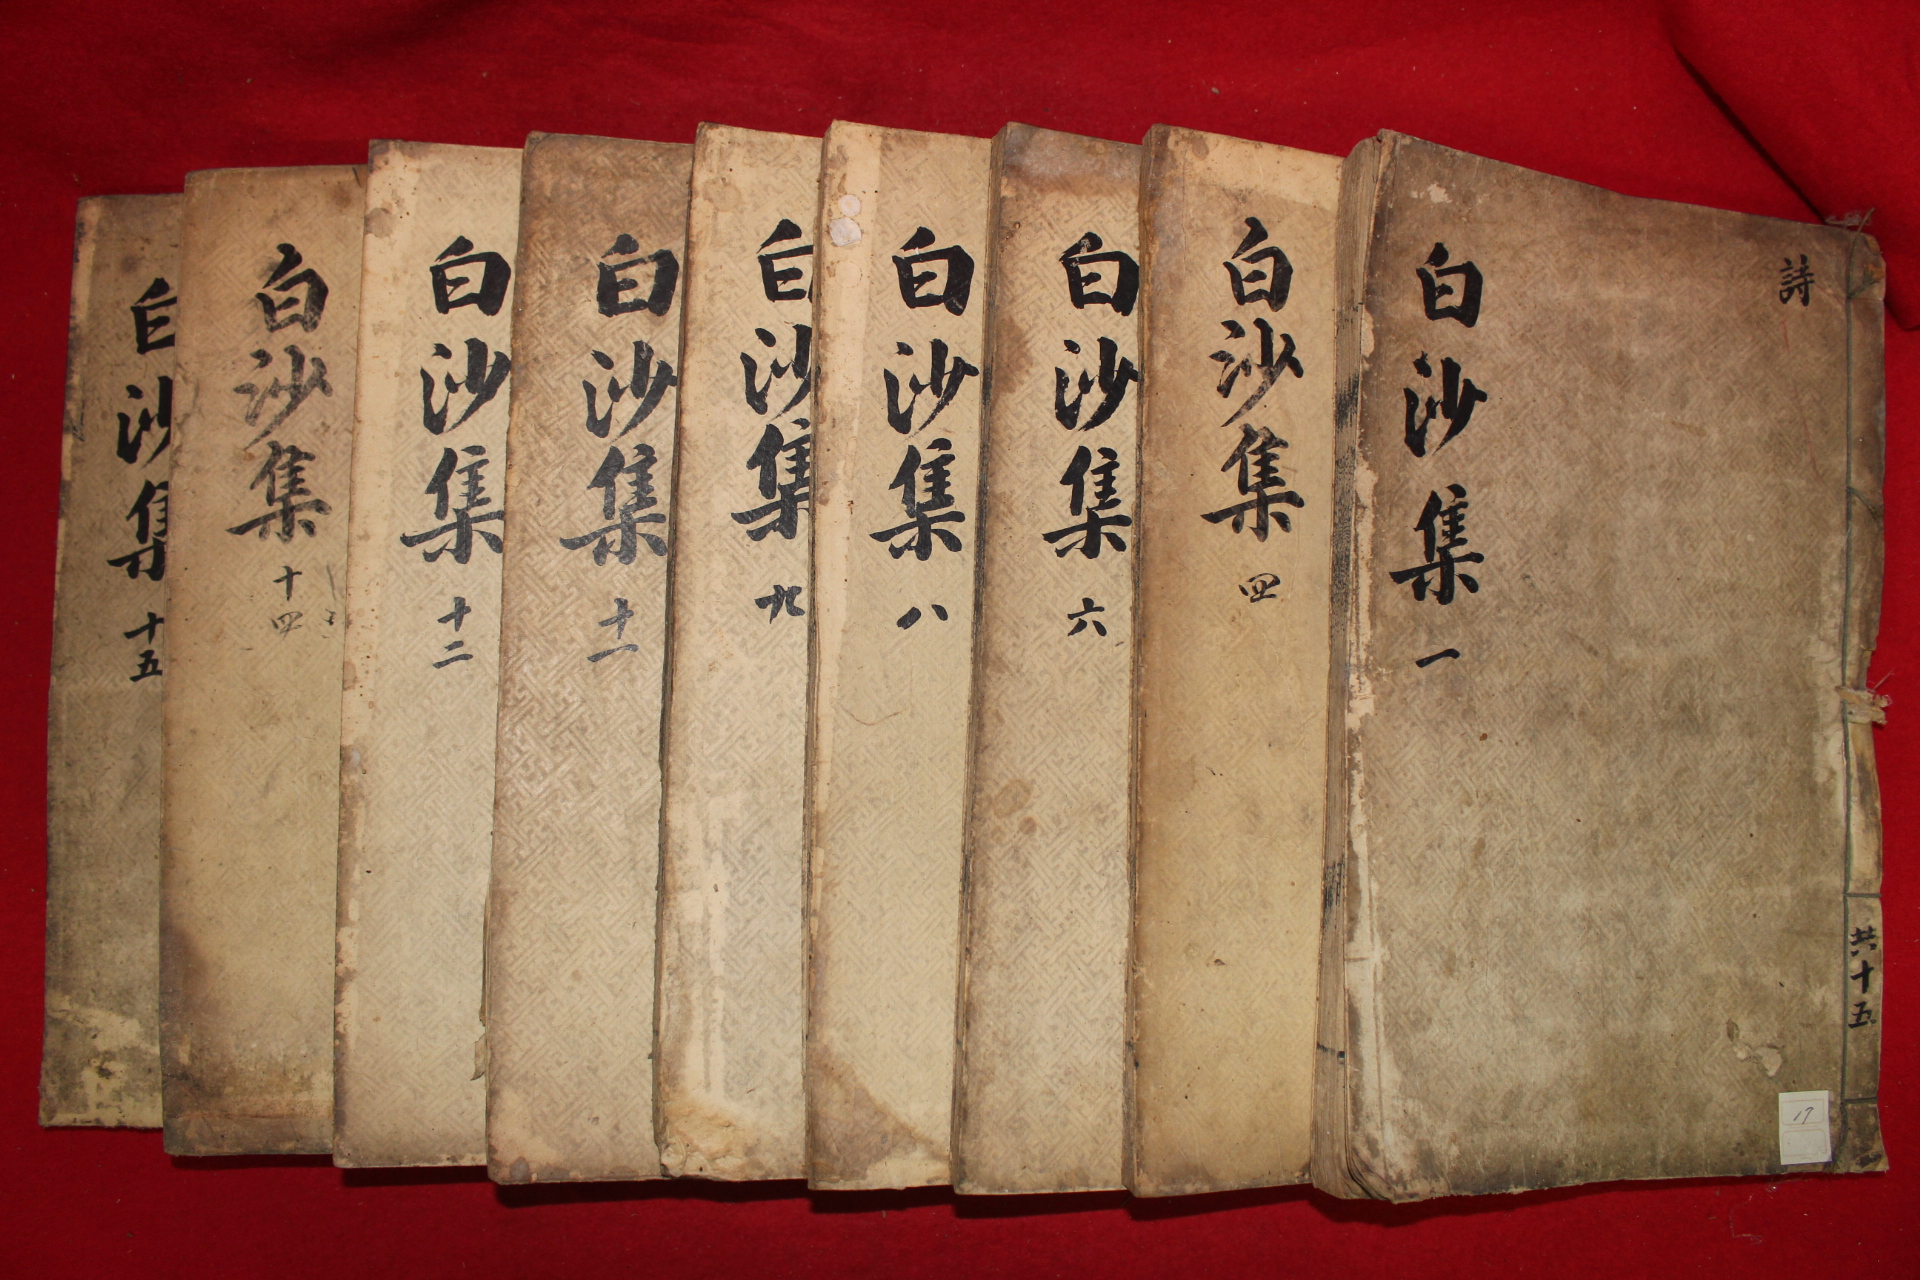 詩
共十五
白沙集 一
17
白沙集 四
白沙集 六
白沙集 八
白沙集 九
白沙集 十一
白沙集 十二
白沙集 十四
白沙集 十五